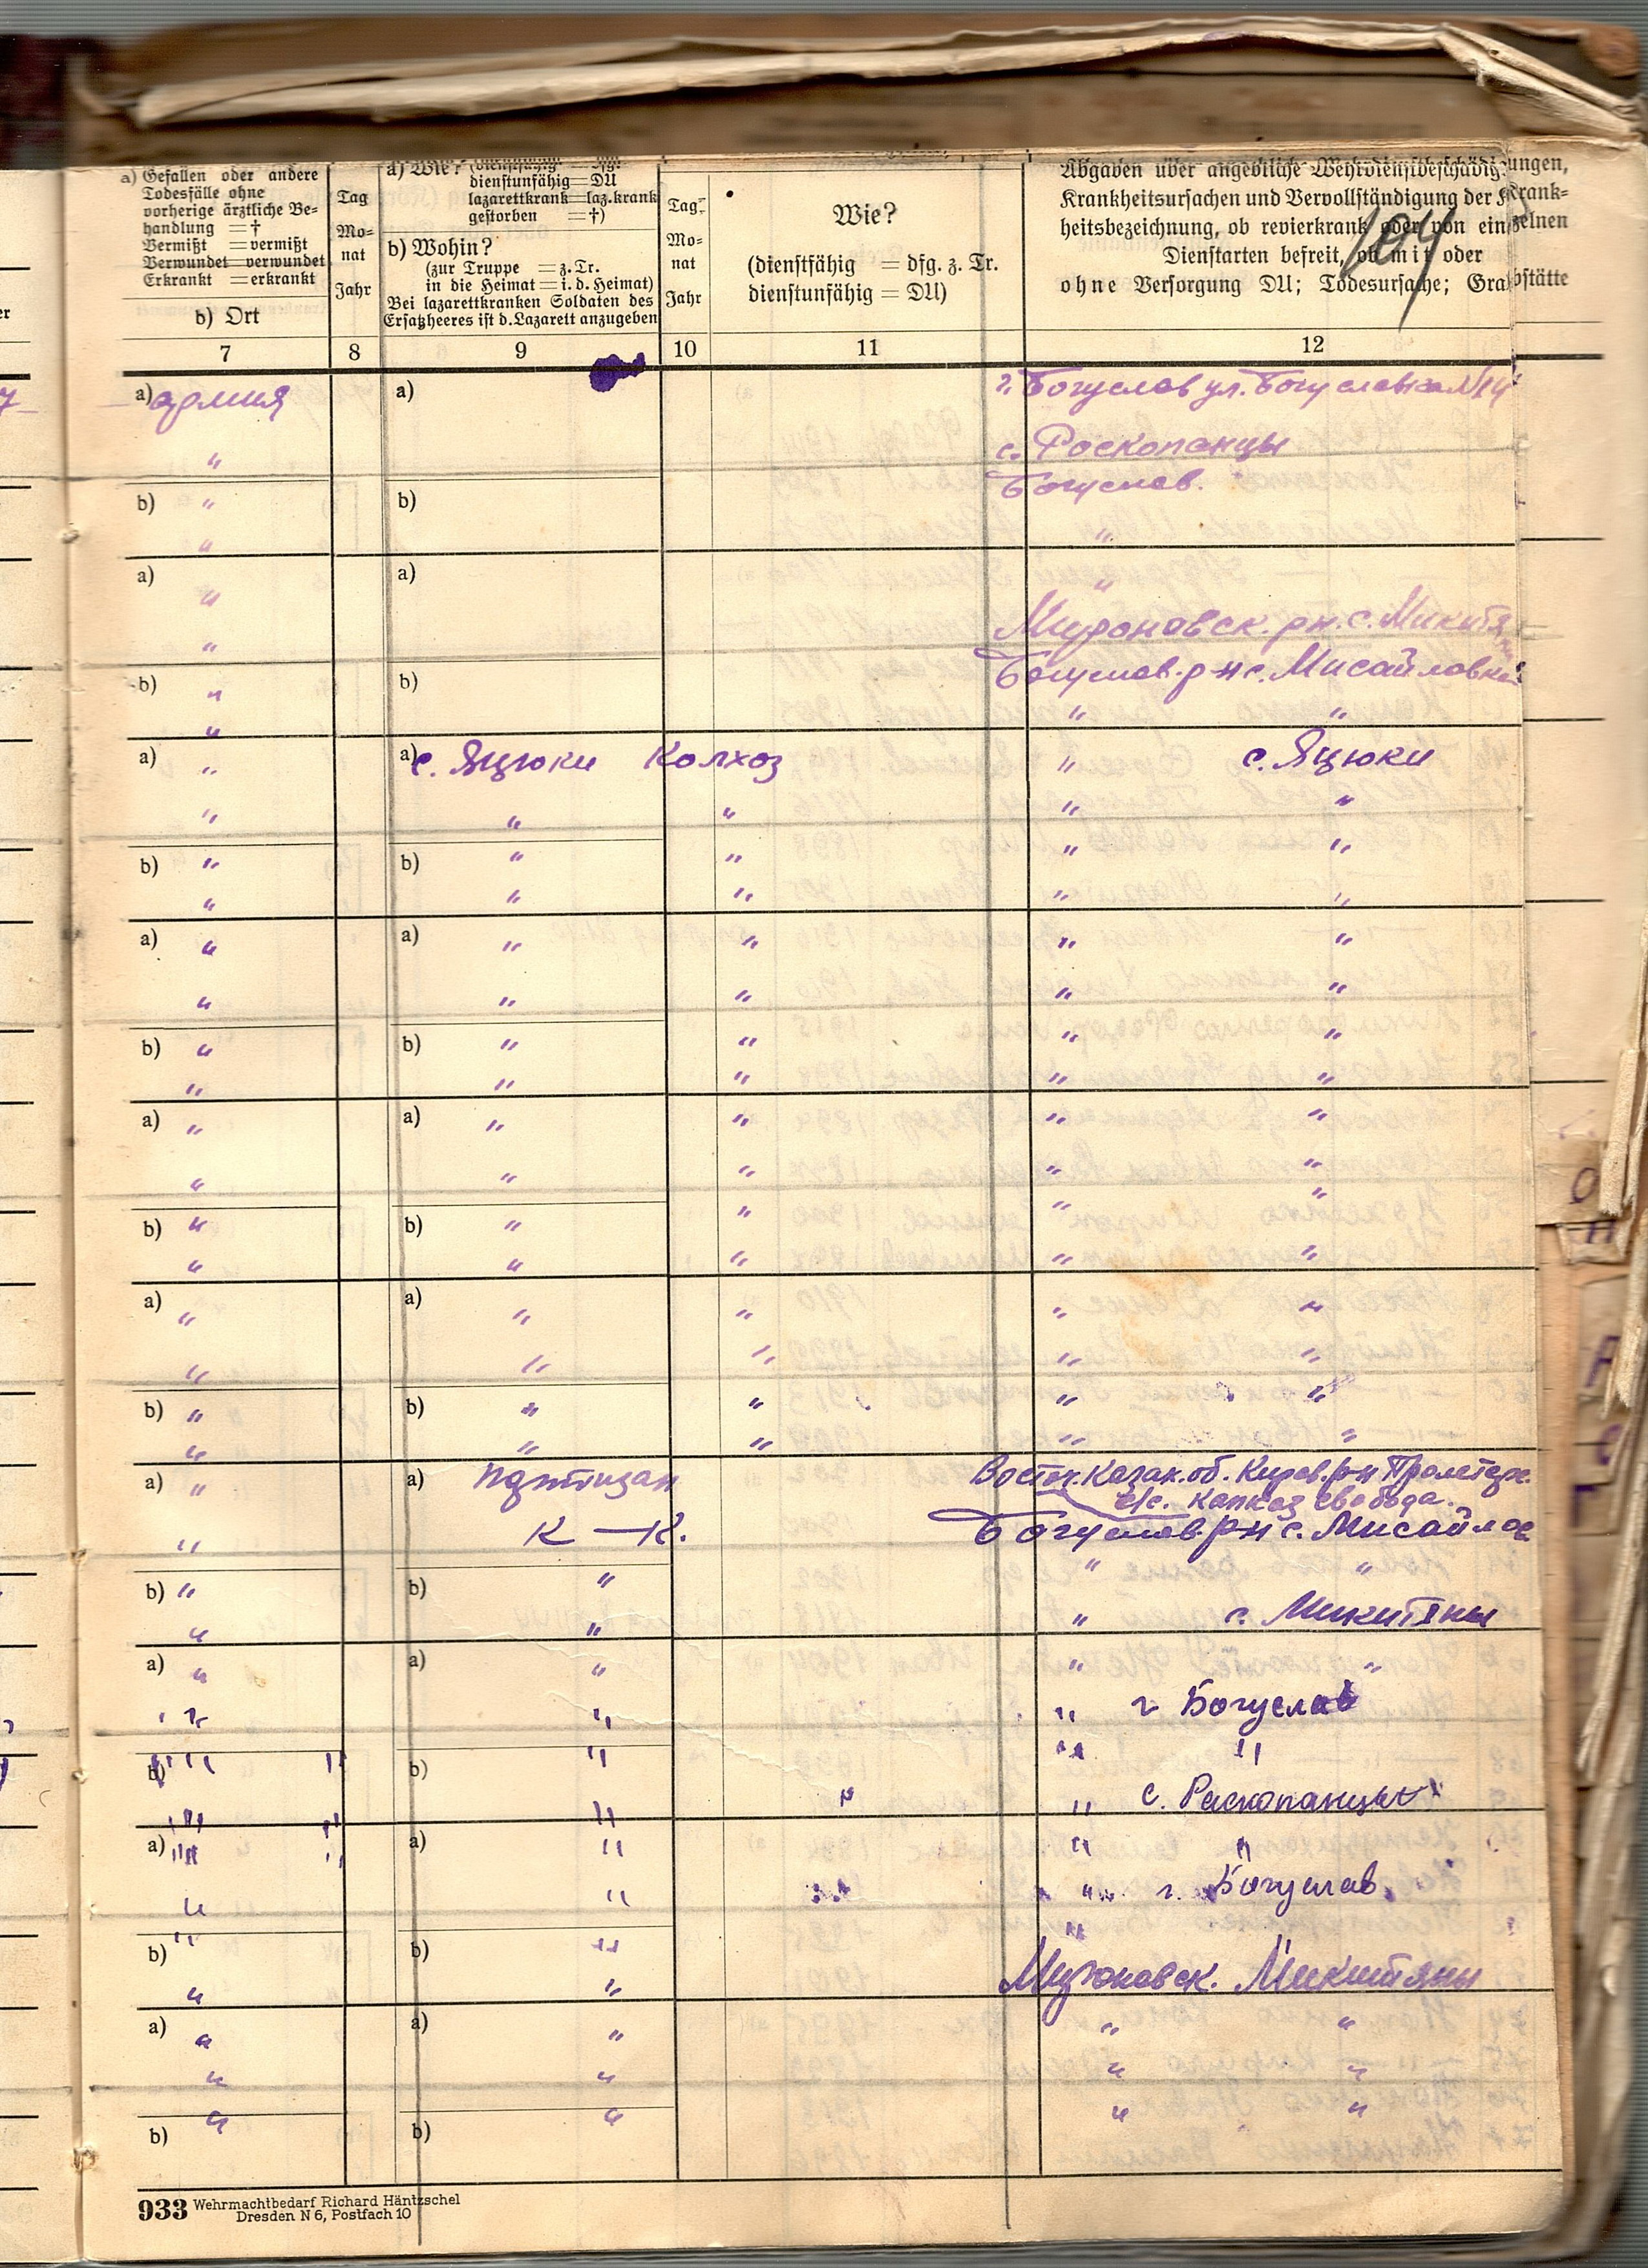 a) Gefallen oder andere
Todesfälle ohne
vorherige ärztliche Be-
handlung = †
Vermißt = vermißt
Verwundet = verwundet
Erkrankt = erkrankt
b) Ort
Tag
Mo-
nat
Jahr
a) Wie? (dienstfähig = dfg.
dienstunfähig = DU
lazarettkrank = laz.krank
gestorben = †)
b) Wohin?
(zur Truppe = z. Tr.
in die Heimat = i. d. Heimat)
Bei lazarettkranken Soldaten des
Ersatzheeres ist d. Lazarett anzugeben
Tag
Mo-
nat
Jahr
Wie?
(dienstfähig = dfg. z. Tr.
dienstunfähig = DU)
Abgaben über angebliche Wehrdienstbeschädig-ungen,
Krankheitsursachen und Vervollständigung der Krank-
heitsbezeichnung, ob revierkrank oder von einzelnen
Dienstarten befreit, ob mit oder
ohne Versorgung DU; Todesursache; Grabstätte
7 8 9 10 11 12
a) армия a) г. Богуслав ул. Богуславка №14
" с. Роскопанцы
b) " b) Богуслав.
" "
a) " a) "
" Мироновск. рн. с. Микитя
b) " b) Богуслав. р-н с. Мисайловка
" " "
a) " a) с. Яцюки Колхоз " с. Яцюки
" " " " "
b) " b) " " " "
" " " " "
a) " a) " " " "
" " " " "
b) " b) " " " "
" " " " "
a) " a) " " " "
" " " " "
b) " b) " " " "
" " " " "
a) " a) " " " "
" " " " "
b) " b) " " " "
" " " " "
a) " a) партизан Восточ. Казах. об. Киров. р-н Пролетар.
с/с. колхоз свобода.
" К — К. Богуслав. р-н с. Мисайлов
b) " b) " " "
" " " с. Микитяны
a) " a) " " "
" " " г Богуслав
b) " " b) " " "
" " " " с. Раскопанцы
a) " " a) " " "
" " " г. Богуслав
b) " b) " "
" " Мироновск. Микитяны
a) " a) " " "
" " " "
b) " b) " " "
933 Wehrmachtbedarf Richard Häntzschel
Dresden N 6, Postfach 10